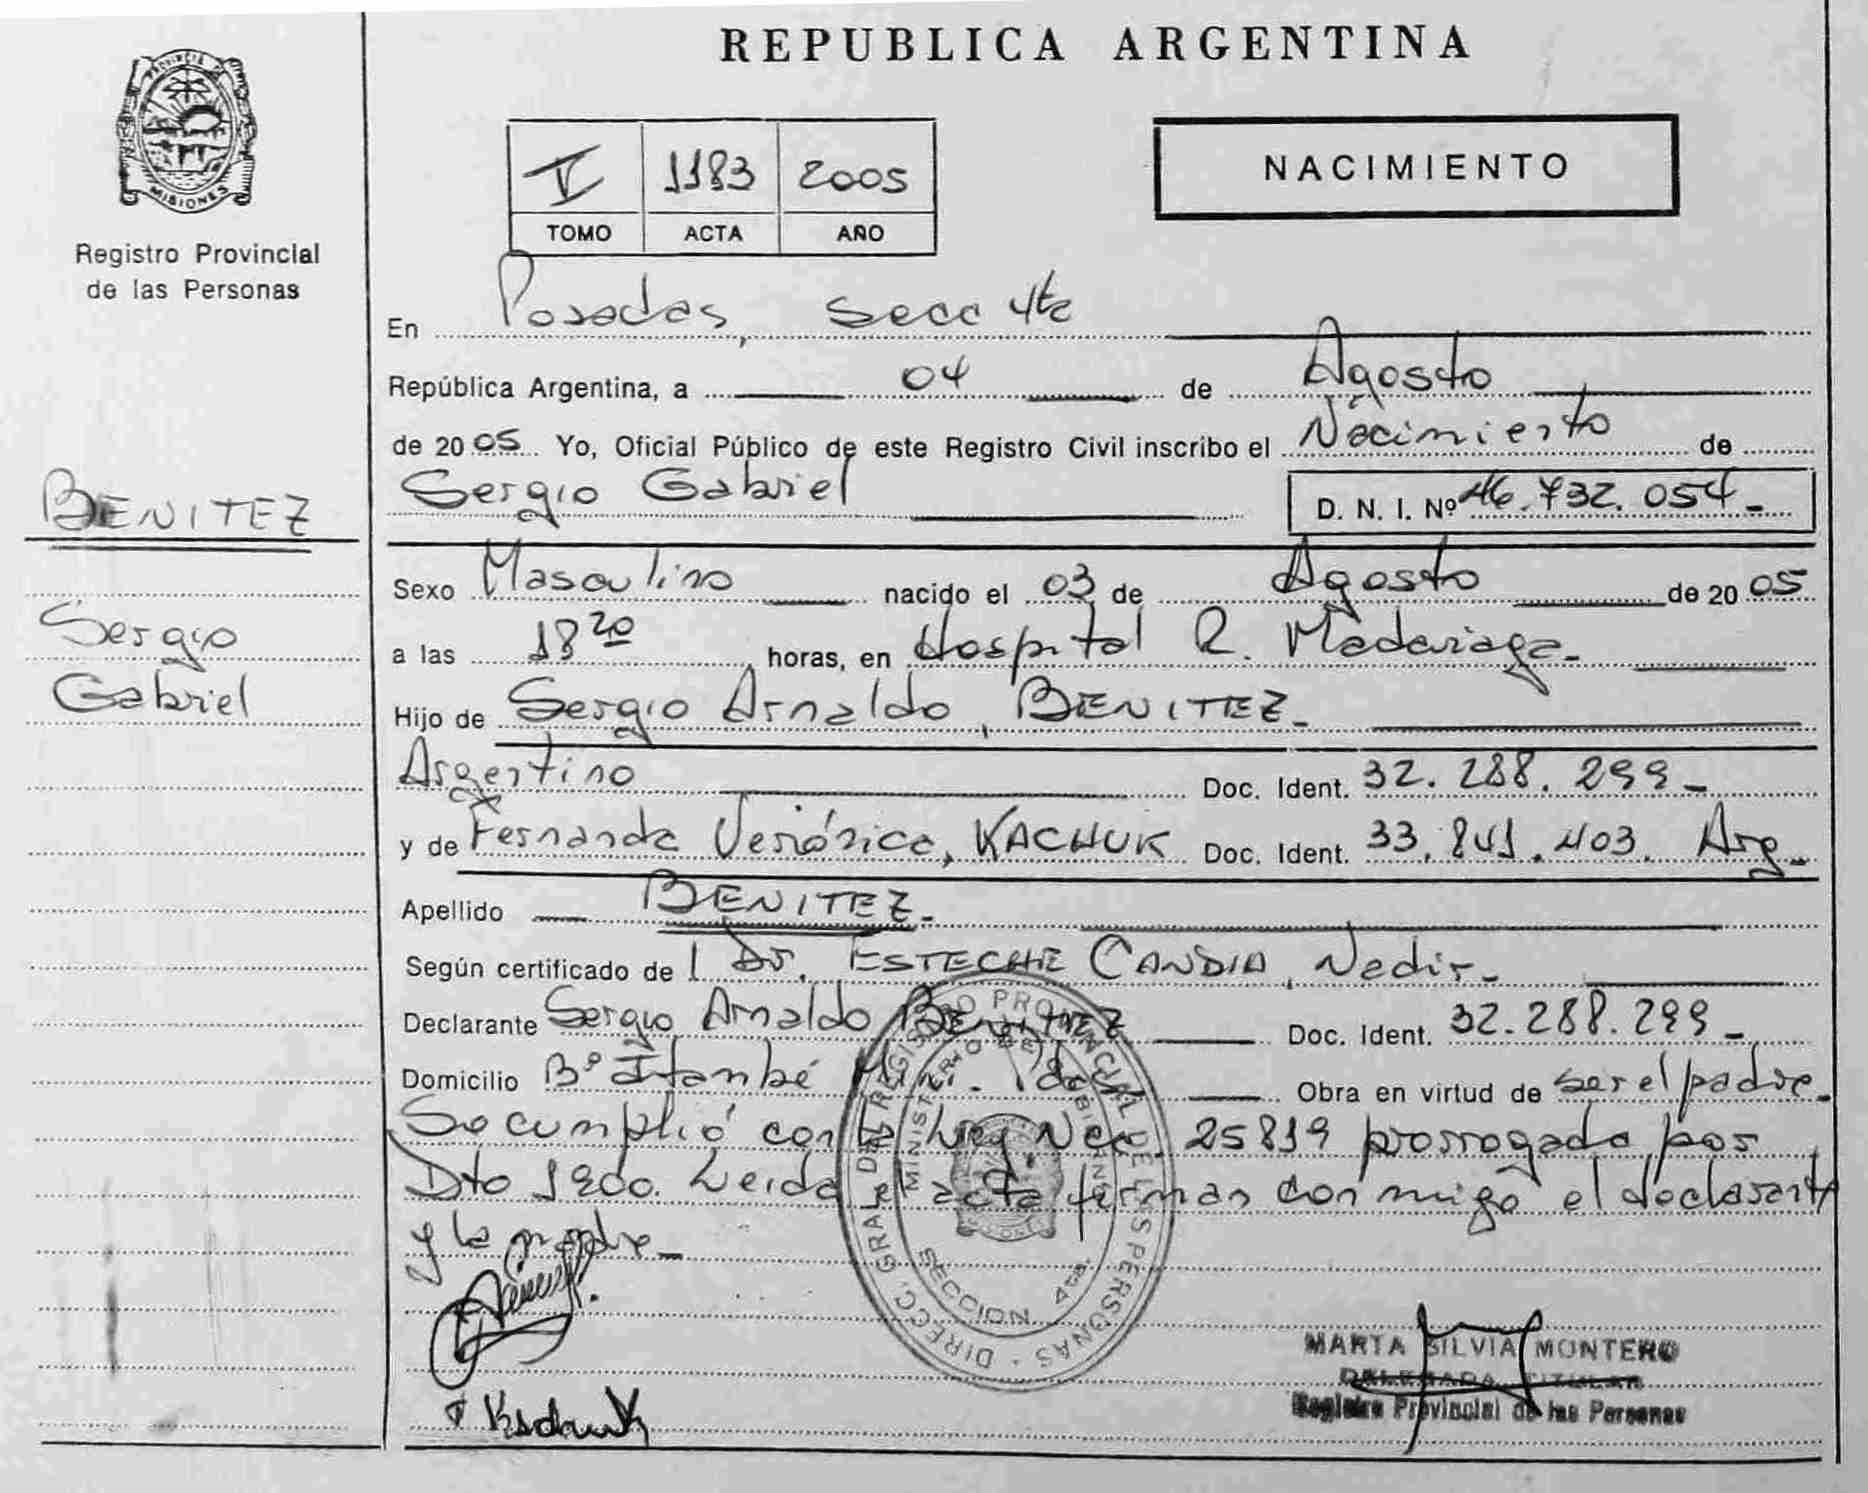 REPUBLICA ARGENTINA
PROVINCIA DE
MISIONES
Registro Provincial
de las Personas
V 1183 2005
TOMO ACTA AÑO
NACIMIENTO
En Posadas, Secc 4ta
República Argentina, a 04 de Agosto
de 2005 Yo, Oficial Público de este Registro Civil inscribo el Nacimiento de
Sergio Gabriel D. N. I. Nº 46.732.054-
BENITEZ
Sergio
Gabriel
Sexo Masculino nacido el 03 de Agosto de 2005
a las 18 20 horas, en Hospital R. Madariaga-
Hijo de Sergio Arnaldo, BENITEZ-
Argentino Doc. Ident. 32.288.299-
y de Fernanda Verónica, KACHUK Doc. Ident. 33.841.403. Arg-
Apellido BENITEZ-
Según certificado de Dr. ESTECHE CANDIA, Nadir-
Declarante Sergio Arnaldo BENITEZ Doc. Ident. 32.288.299-
Domicilio Bº Itambé Miní. Pdas. Obra en virtud de ser el padre-
Se cumplió con la Ley Nac. 25819 prorrogada por
Dto Leida el acta firman conmigo el declarante
y la madre-
DIRECC. GRAL. DEL REGISTRO PROVINCIAL DE LAS PERSONAS
MINISTERIO DE GOBIERNO
SECCION 4ta.
MARTA SILVIA MONTERO
DELEGADA TITULAR
Registro Provincial de las Personas